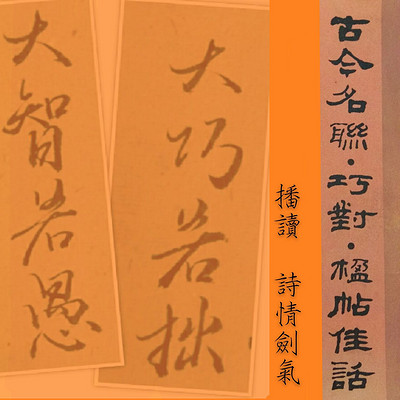 古今名聯·巧對·楹帖佳話
播讀 詩情劍氣
大巧若拙
大智若愚